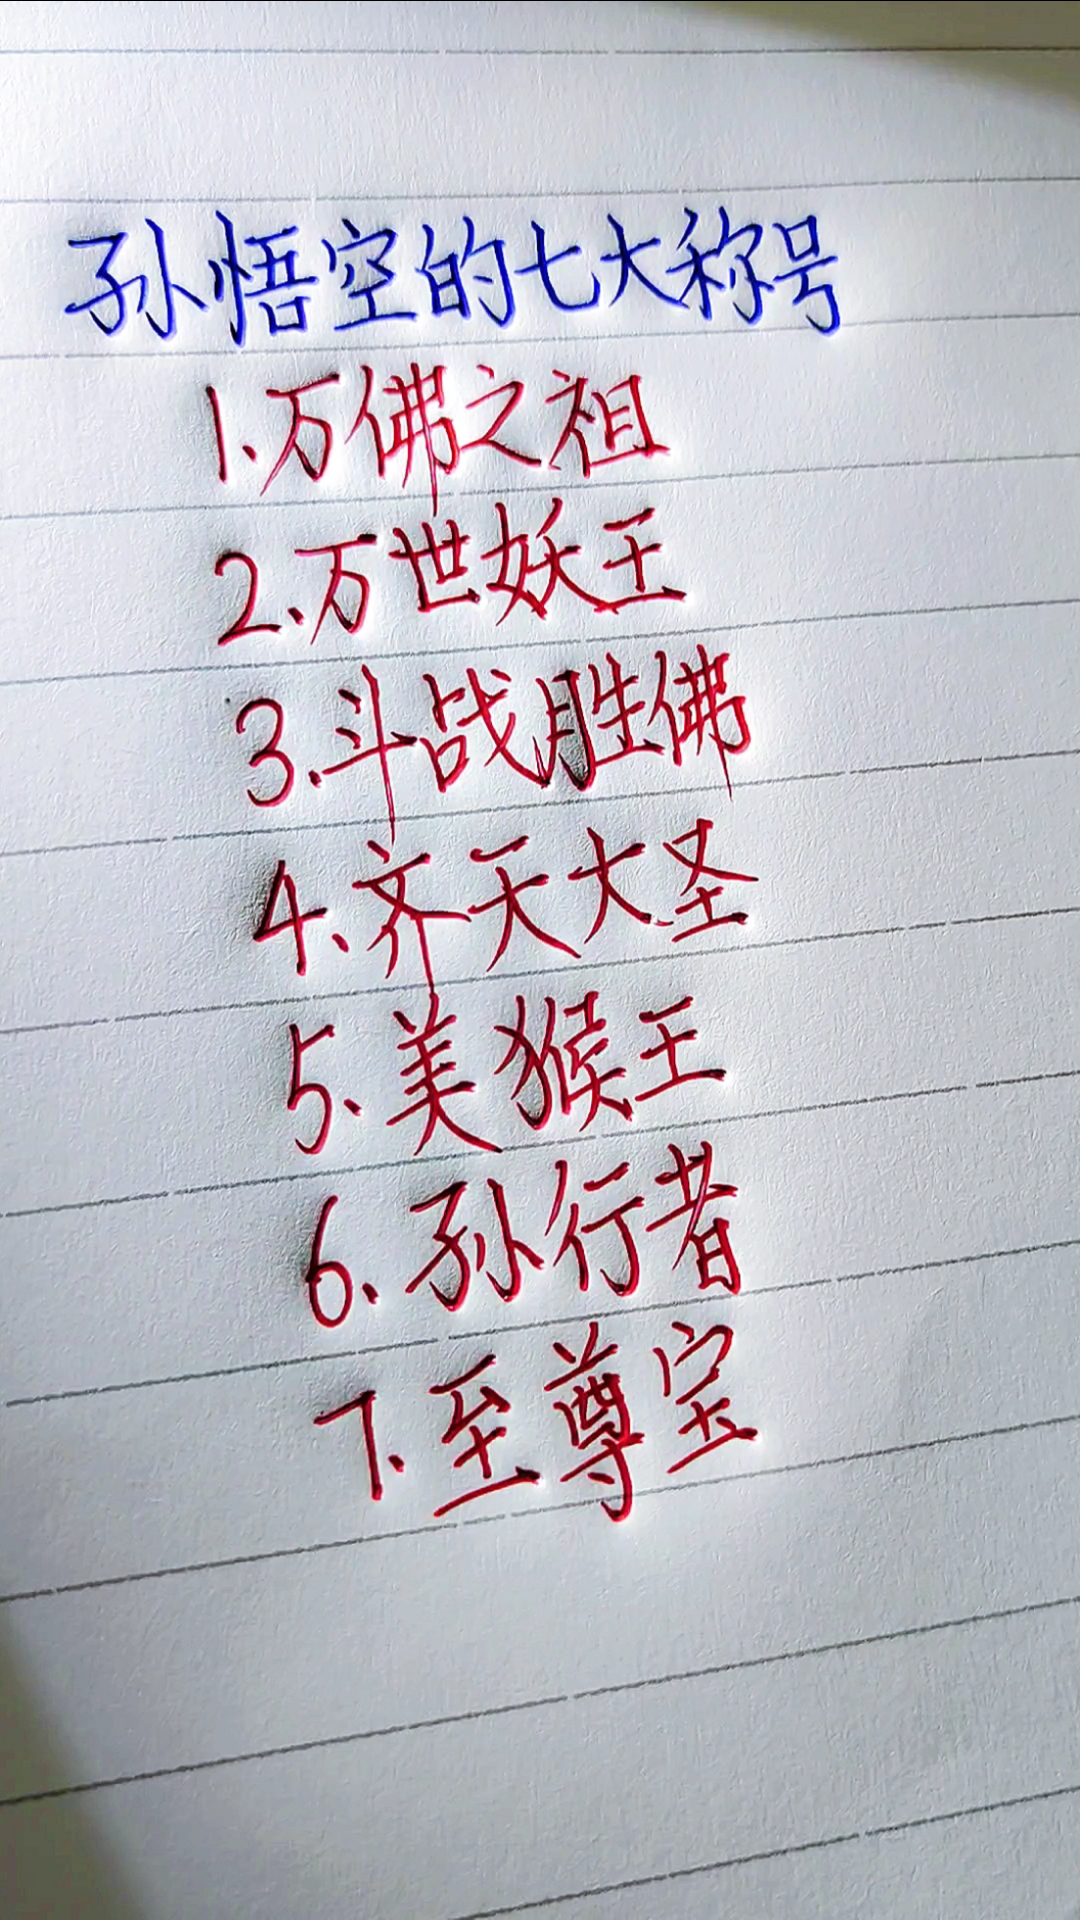 孙悟空的七大称号
1.万佛之祖
2.万世妖王
3.斗战胜佛
4.齐天大圣
5.美猴王
6.孙行者
7.至尊宝